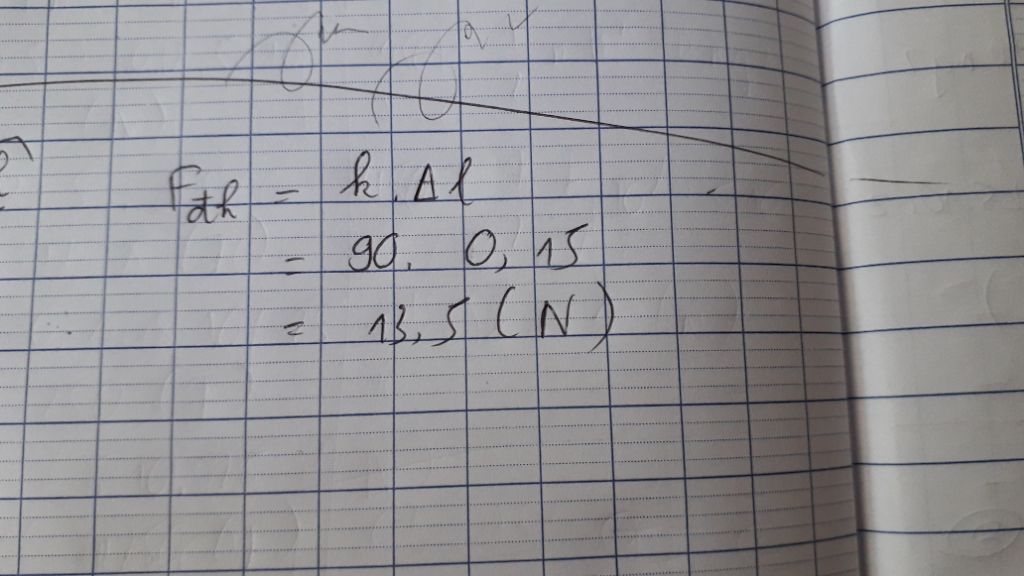 F_đh = k . Δl
= 90. 0, 15
= 13, 5 (N)